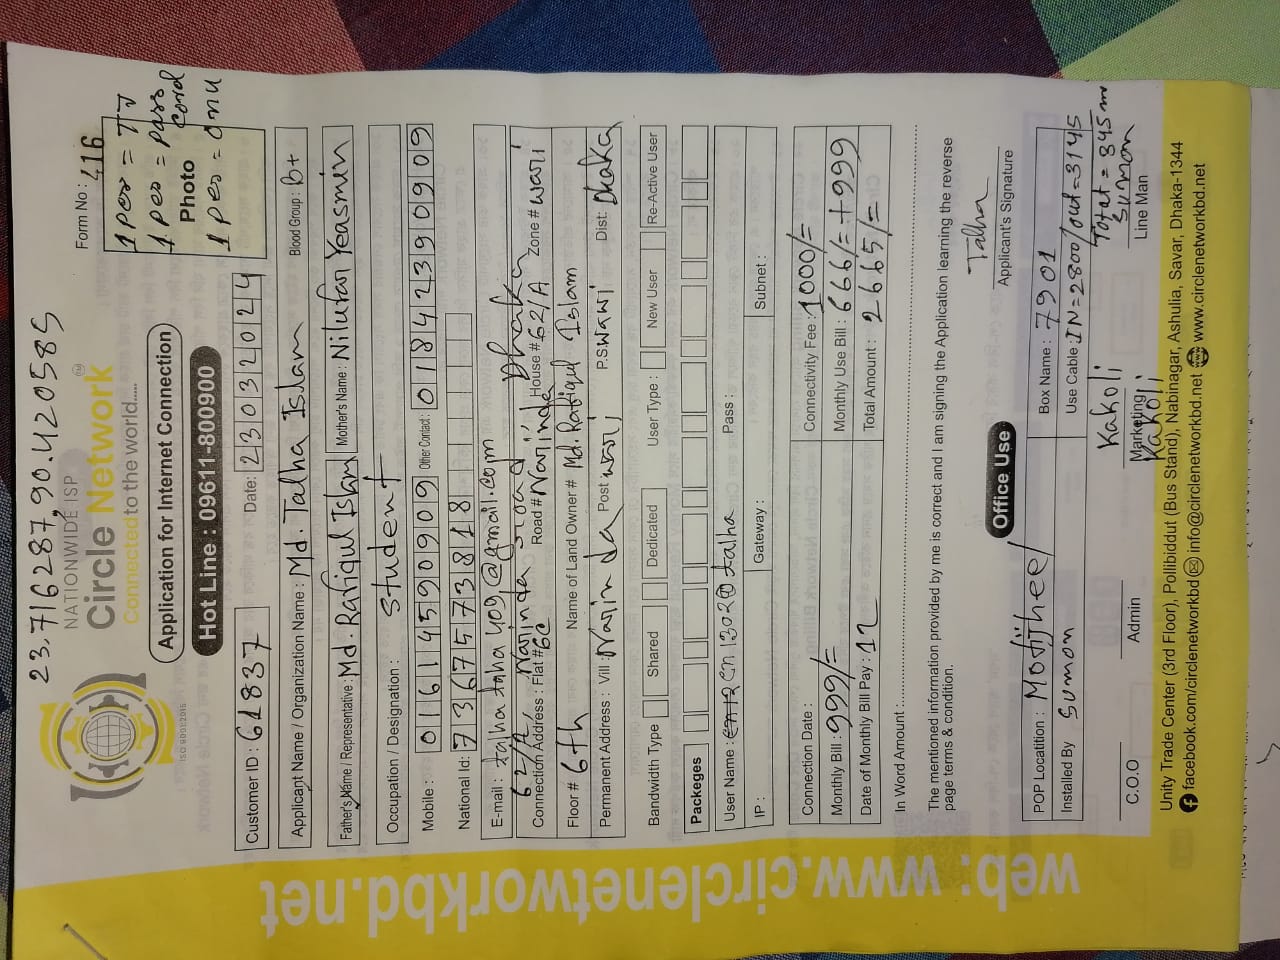 23.716287,90.420585
NATIONWIDE ISP
Circle Network
Connected to the world.....
ISO 9001:2015
Application for Internet Connection
Hot Line : 09611-800900
Form No : 416
1 pes = TJ
1 pes = pass cord
Photo
1 pes = onu
Customer ID : 61837
Date: 23032024
Applicant Name / Organization Name : Md. Talha Islam Blood Group : B+
Father's Name / Representative : Md. Rafiqul Islam Mother's Name : Nilufar Yeasmin
Occupation / Designation : Student
Mobile : 01614590909 Other Contact: 01842390909
National Id: 7367573818
E-mail : talha taha409@gmail.com
62/A, Narinda Dhaka
Connection Address : Flat # 6C Road # Narinda House # 62/A Zone # wari
Floor # 6th Name of Land Owner # Md. Rafiqul Islam
Permanent Address : Vill : Narinda Post wari P.S wari Dist: Dhaka
Bandwidth Type Shared Dedicated User Type : New User Re-Active User
Packeges
User Name : cn1302@talha Pass :
IP : Gateway : Subnet :
Connection Date : Connectivity Fee : 1000/=
Monthly Bill : 999/= Monthly Use Bill : 666/= +999
Date of Monthly Bill Pay : 12 Total Amount : 2665/=
In Word Amount
The mentioned information provided by me is correct and I am signing the Application learning the reverse
page terms & condition.
Talha
Applicant's Signature
Office Use
POP Locatition : Motijheel Box Name : 7901
Installed By Sumon Use Cable : IN=2800/out=3145
Total = 345 m
Kakoli Sumon
C.O.O Admin Marketing Line Man
Kakoli
Unity Trade Center (3rd Floor), Pollibiddut (Bus Stand), Nabinagar, Ashulia, Savar, Dhaka-1344
facebook.com/circlenetworkbd info@circlenetworkbd.net www.circlenetworkbd.net
web: www.circlenetworkbd.net